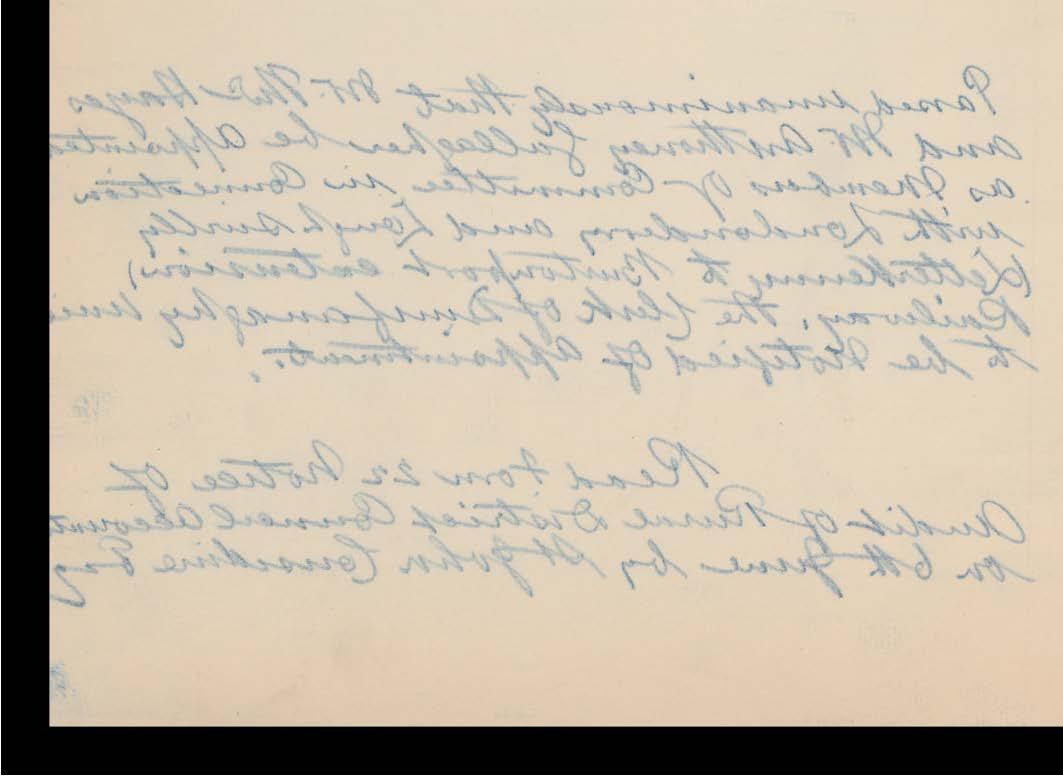 Passed unanimously that Mr. Thos Hayes
and Mr Anthoney Gallagher be appointed
as Members of Committee in Connection
with Londonderry and Lough Swilly
(Letterkenny to Burtonport extension)
Railway. The Clerk of Dunfanaghy
to be Notified of appointment.
Read form 22 Notice of
Audit of Rural District Council Account
on 6th June by St John Considine Esq